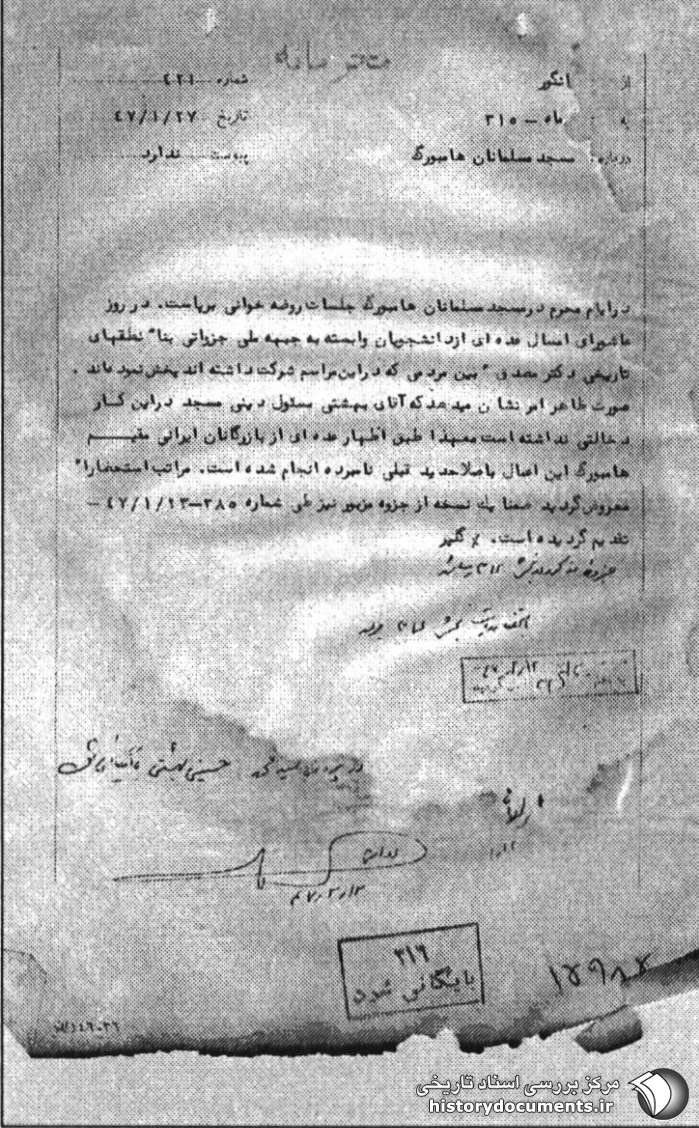 از انگور شماره ۴۲۱
به ماه - ۳۱۵ تاریخ ۴۷/۱/۲۷
درباره مسجد مسلمانان هامبورگ پیوست ندارد
در ایام محرم در مسجد مسلمانان هامبورگ جلسات روضه خوانی برپاست. در روز
عاشورای امسال عده ای از دانشجویان وابسته به جبهه ملی جزواتی بنام نطقهای
تاریخی دکتر مصدق بین مردمی که در این مراسم شرکت داشته اند پخش نموده اند.
صورت ظاهر امر نشان میدهد که آقای بهشتی مسئول دینی مسجد در این کار
دخالتی نداشته است معهذا طبق اظهار عده ای از بازرگانان ایرانی مقیم
هامبورگ این اعمال با صلاحدید قبلی نامبرده انجام شده است. مراتب استحضاراً
معروض گردید ضمنا یک نسخه از جزوه مزبور نیز طی شماره ۳۸۵-۴۷/۱/۲۳ -
تقدیم گردیده است. گلپر
در پرونده سید محمد حسینی بهشتی
۳۱۶
بایگانی شود
مرکز بررسی اسناد تاریخی
historydocuments.ir